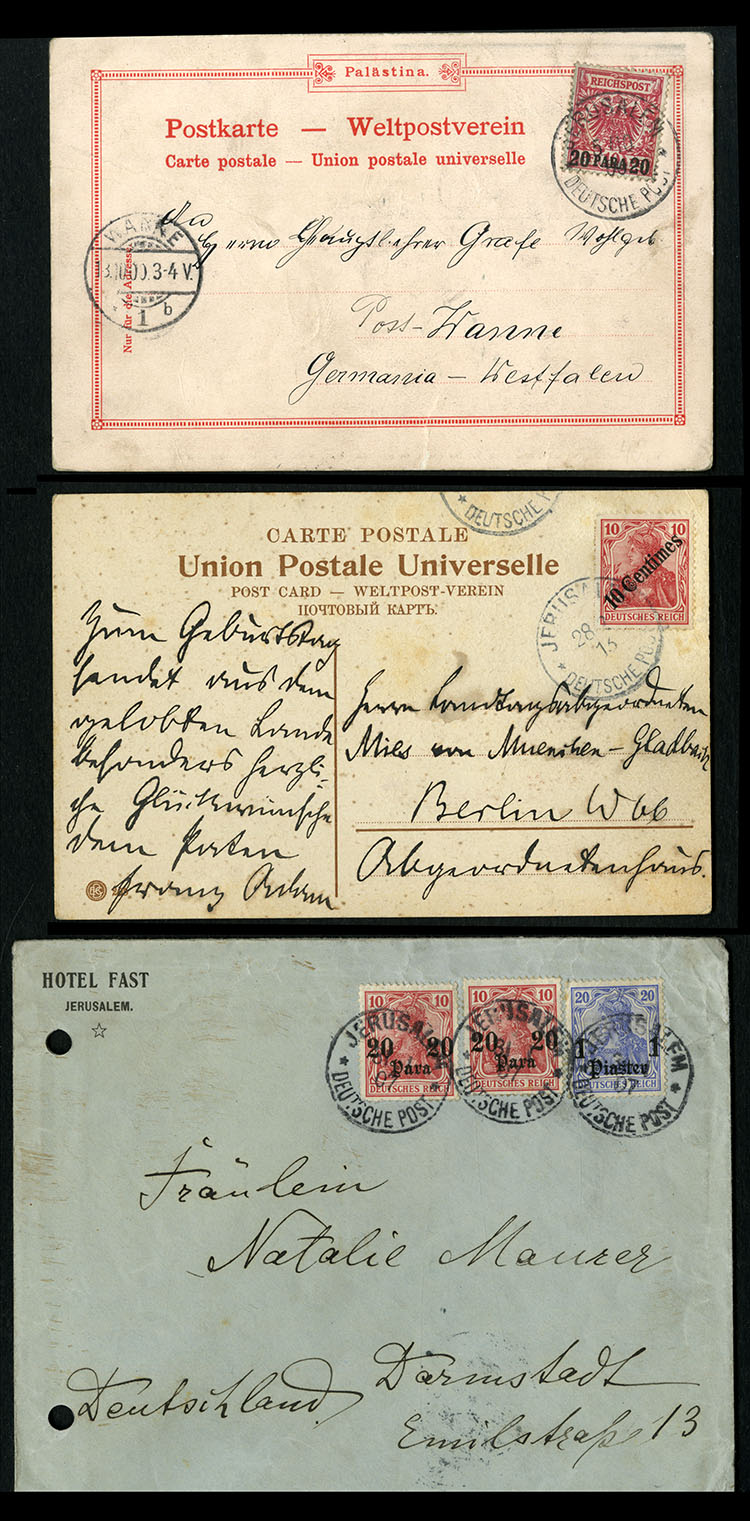 Palästina.
Postkarte — Weltpostverein
Carte postale — Union postale universelle
REICHSPOST
20 PARA 20
JERUSALEM
DEUTSCHE POST
An
Herrn Hauptlehrer Grafe Wohlgeb.
Post-Wanne
Germania – Westfalen
WANNE
3-4 V.
1 b
Nur für die Adresse.
DEUTSCHE
CARTE POSTALE
Union Postale Universelle
POST CARD — WELTPOST-VEREIN
ПОЧТОВЫЙ КАРТЪ.
10 10
10 Centimes
DEUTSCHES REICH
JERUSALEM
28
13
DEUTSCHE POST
Zum Geburtstag
sendet aus dem
gelobten Lande
besonders herzli-
che Glückwünsche
dem Paten
Franz Adam
Herrn Landtagsabgeordneten
Mies von Muenchen – Gladbach
Berlin W 66
Abgeordnetenhaus.
HOTEL FAST
JERUSALEM.
10 10
20 20
Para
DEUTSCHES REICH
10 10
20 20
Para
DEUTSCHES REICH
20 20
1 1
Piaster
DEUTSCHES REICH
JERUSALEM
DEUTSCHE POST
JERUSALEM
DEUTSCHE POST
JERUSALEM
DEUTSCHE POST
Fräulein
Natalie Maurer
Darmstadt
Deutschland
Emilstraße 13